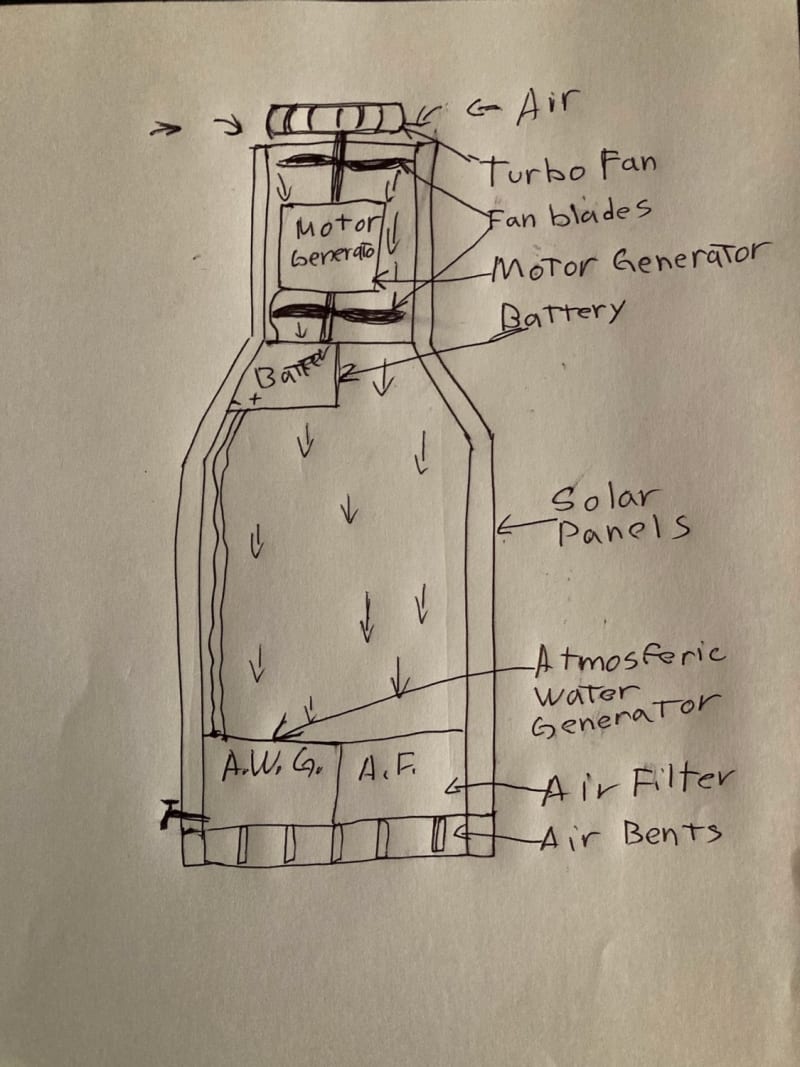 Air
Turbo Fan
Fan blades
Motor
Generato
Motor Generator
Battery
Battery
- +
Solar
Panels
Atmosferic
Water
Generator
A.W.G.
A.F.
Air Filter
Air Bents